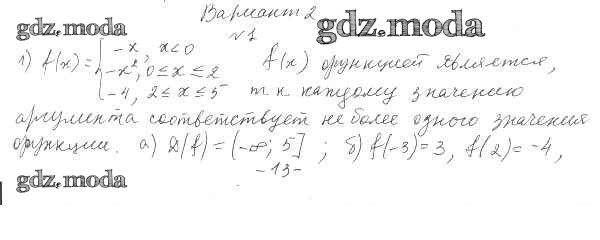 Вариант 2
gdz.moda
gdz.moda
№1
1) f(x) = { -x, x<0
-x², 0≤x≤2
-4, 2≤x≤5
f(x) функцией является,
т.к каждому значению
аргумента соответствует не более одного значения
функции. а) D(f) = (-∞; 5] ; б) f(-3)=3, f(2)=-4,
-13-
gdz.moda